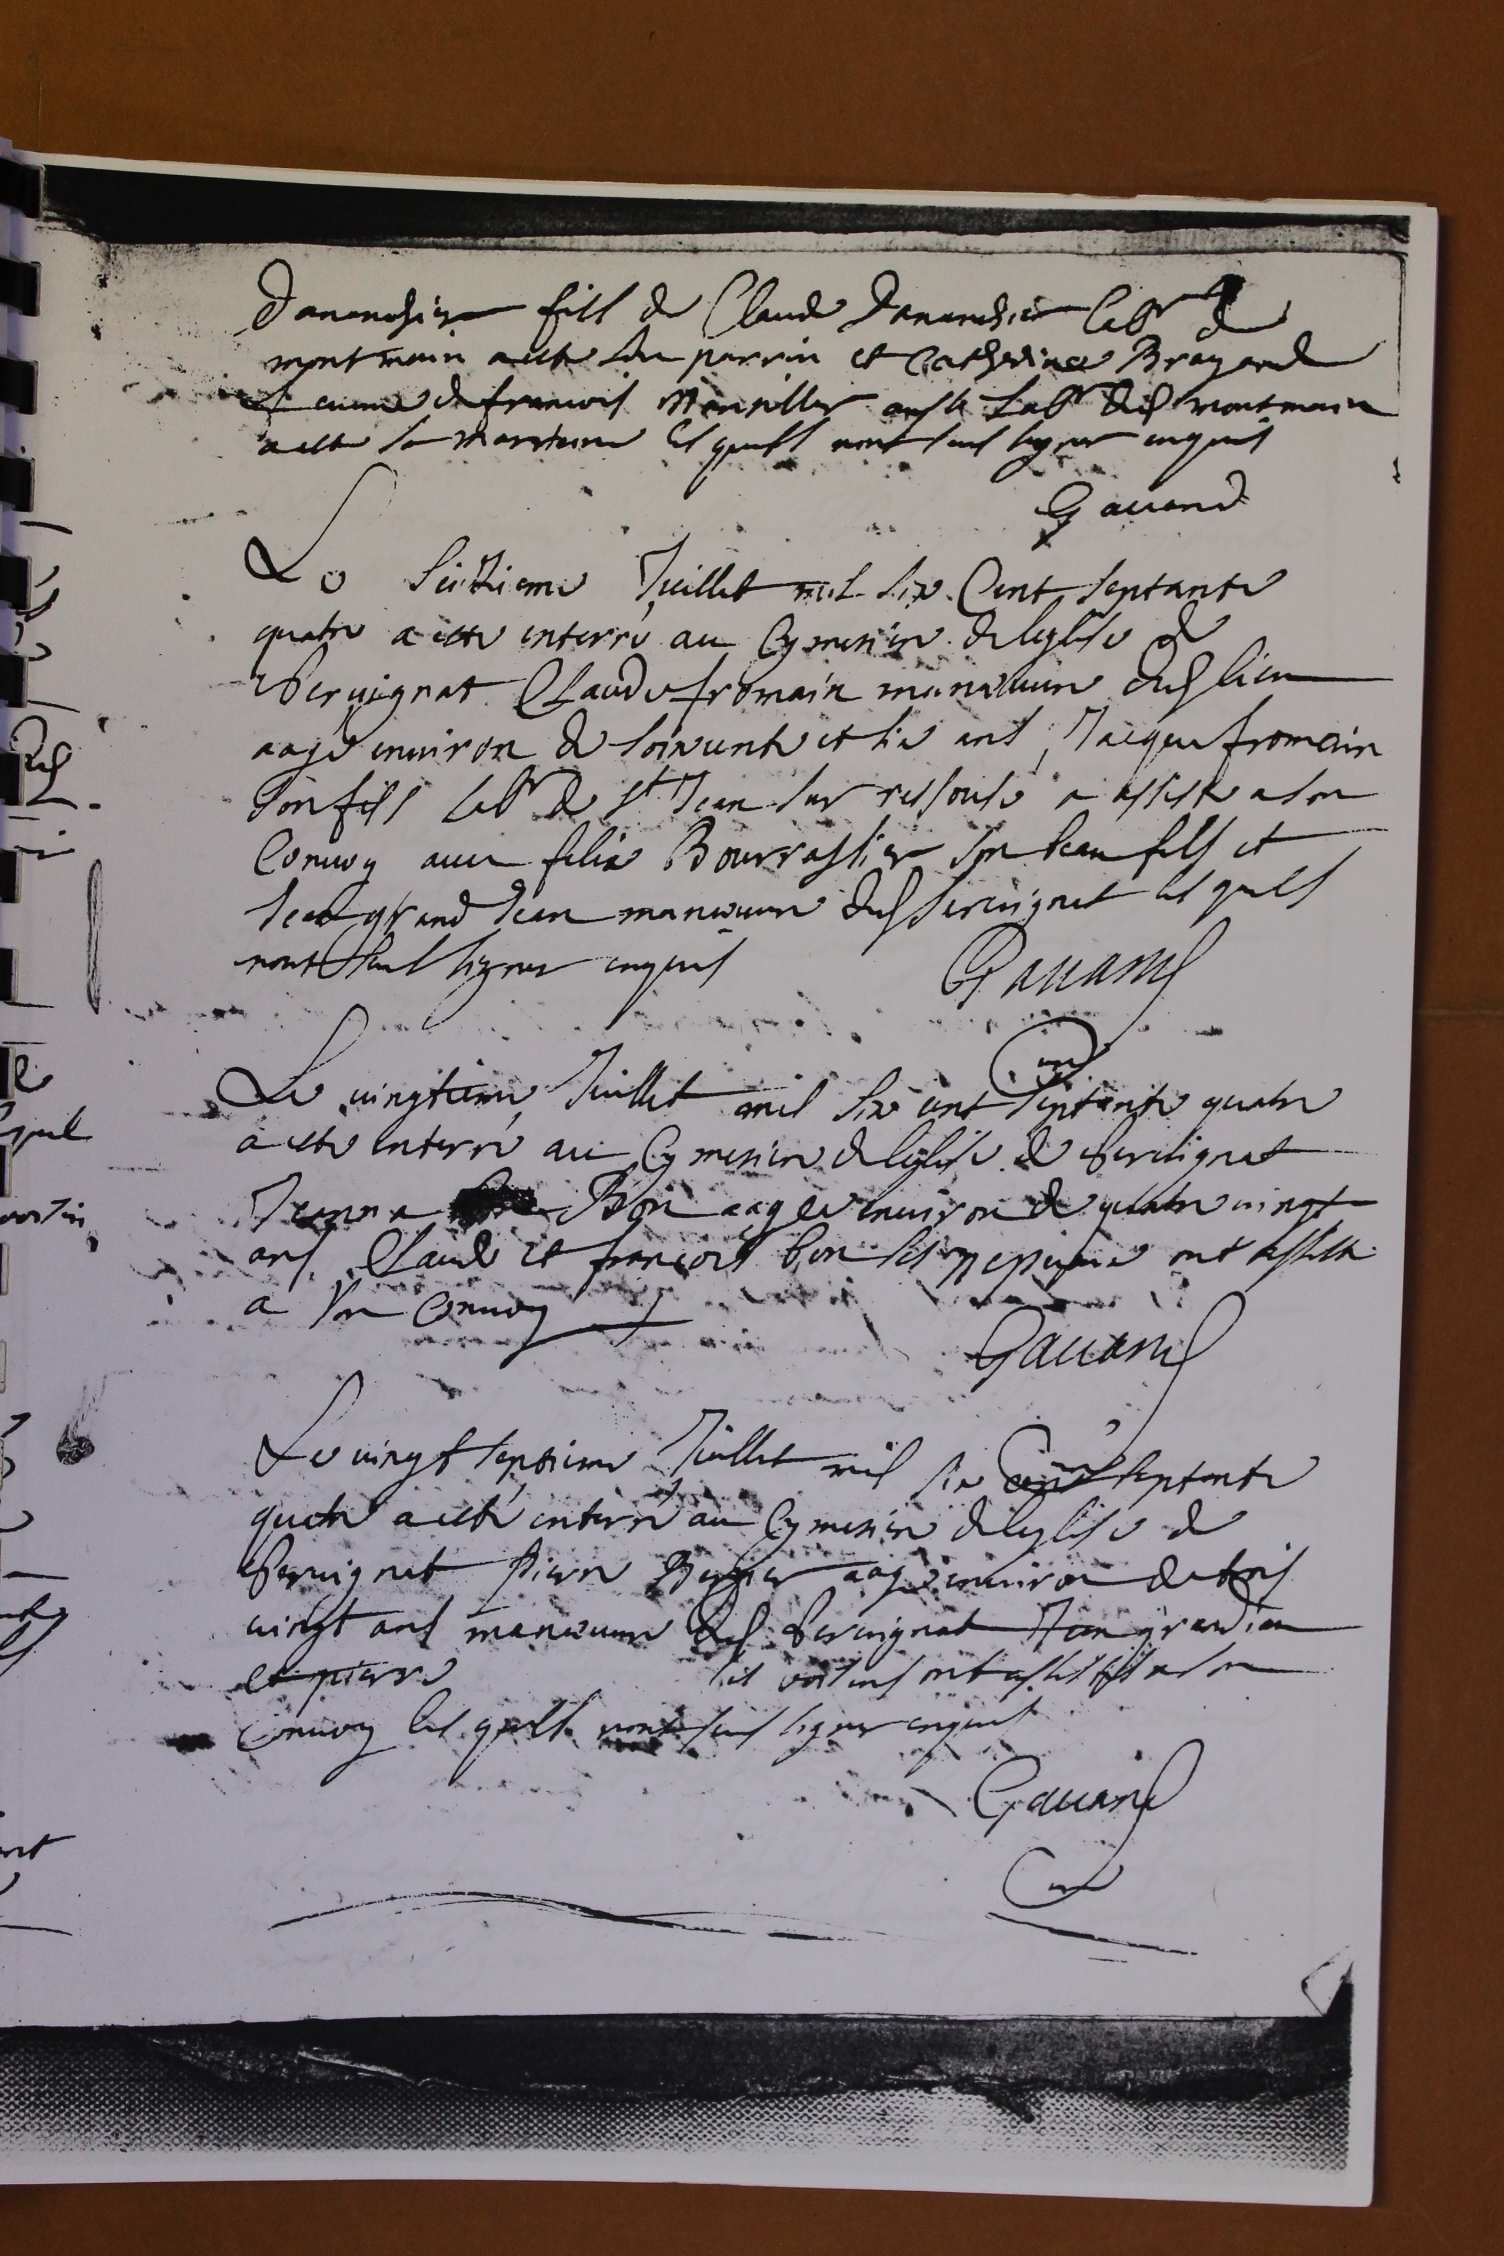 Dananchier fils de Claude Dananchier labr de
montmain a esté son parrin et Catherine Brayard
femme de francois aussi labr dud montmain
a esté sa Marreine les quels nont sceus signer enquis
Gavand
Le seizieme Juillet mil six Cent septante
quatre a esté enterré au Cymetiere de leglise de
Servignat Claude fromain manoeuvre dud lieu
aagé environ de soixante et six ans, Jacque fromain
son fils labr de st Jean sur ressouse a assisté a son
Convoy avec felix Bourrassier son beau fils et
Jean grand Jean manoeuvre dud Servignat les quels
nont sceus signer enquis
Gavand
Le vingtieme Juillet mil six cent septante quatre
a esté enterré au Cymetiere de leglise de Servignat
Jeanne Bon aagée environ de quatre vingt
ans Claude et francois bon ses nepveux ont assisté
a son Convoy
Gavand
Le vingt septieme Juillet mil six Cent septante
quatre a esté enterré au Cymetiere de leglise de
Servignat Pierre aagé environ de trois
vingt ans manoeuvre dud Servignat Jean grandian
et pierre ses voisins ont assisté a son
Convoy les quels nont sceus signer enquis
Gavand